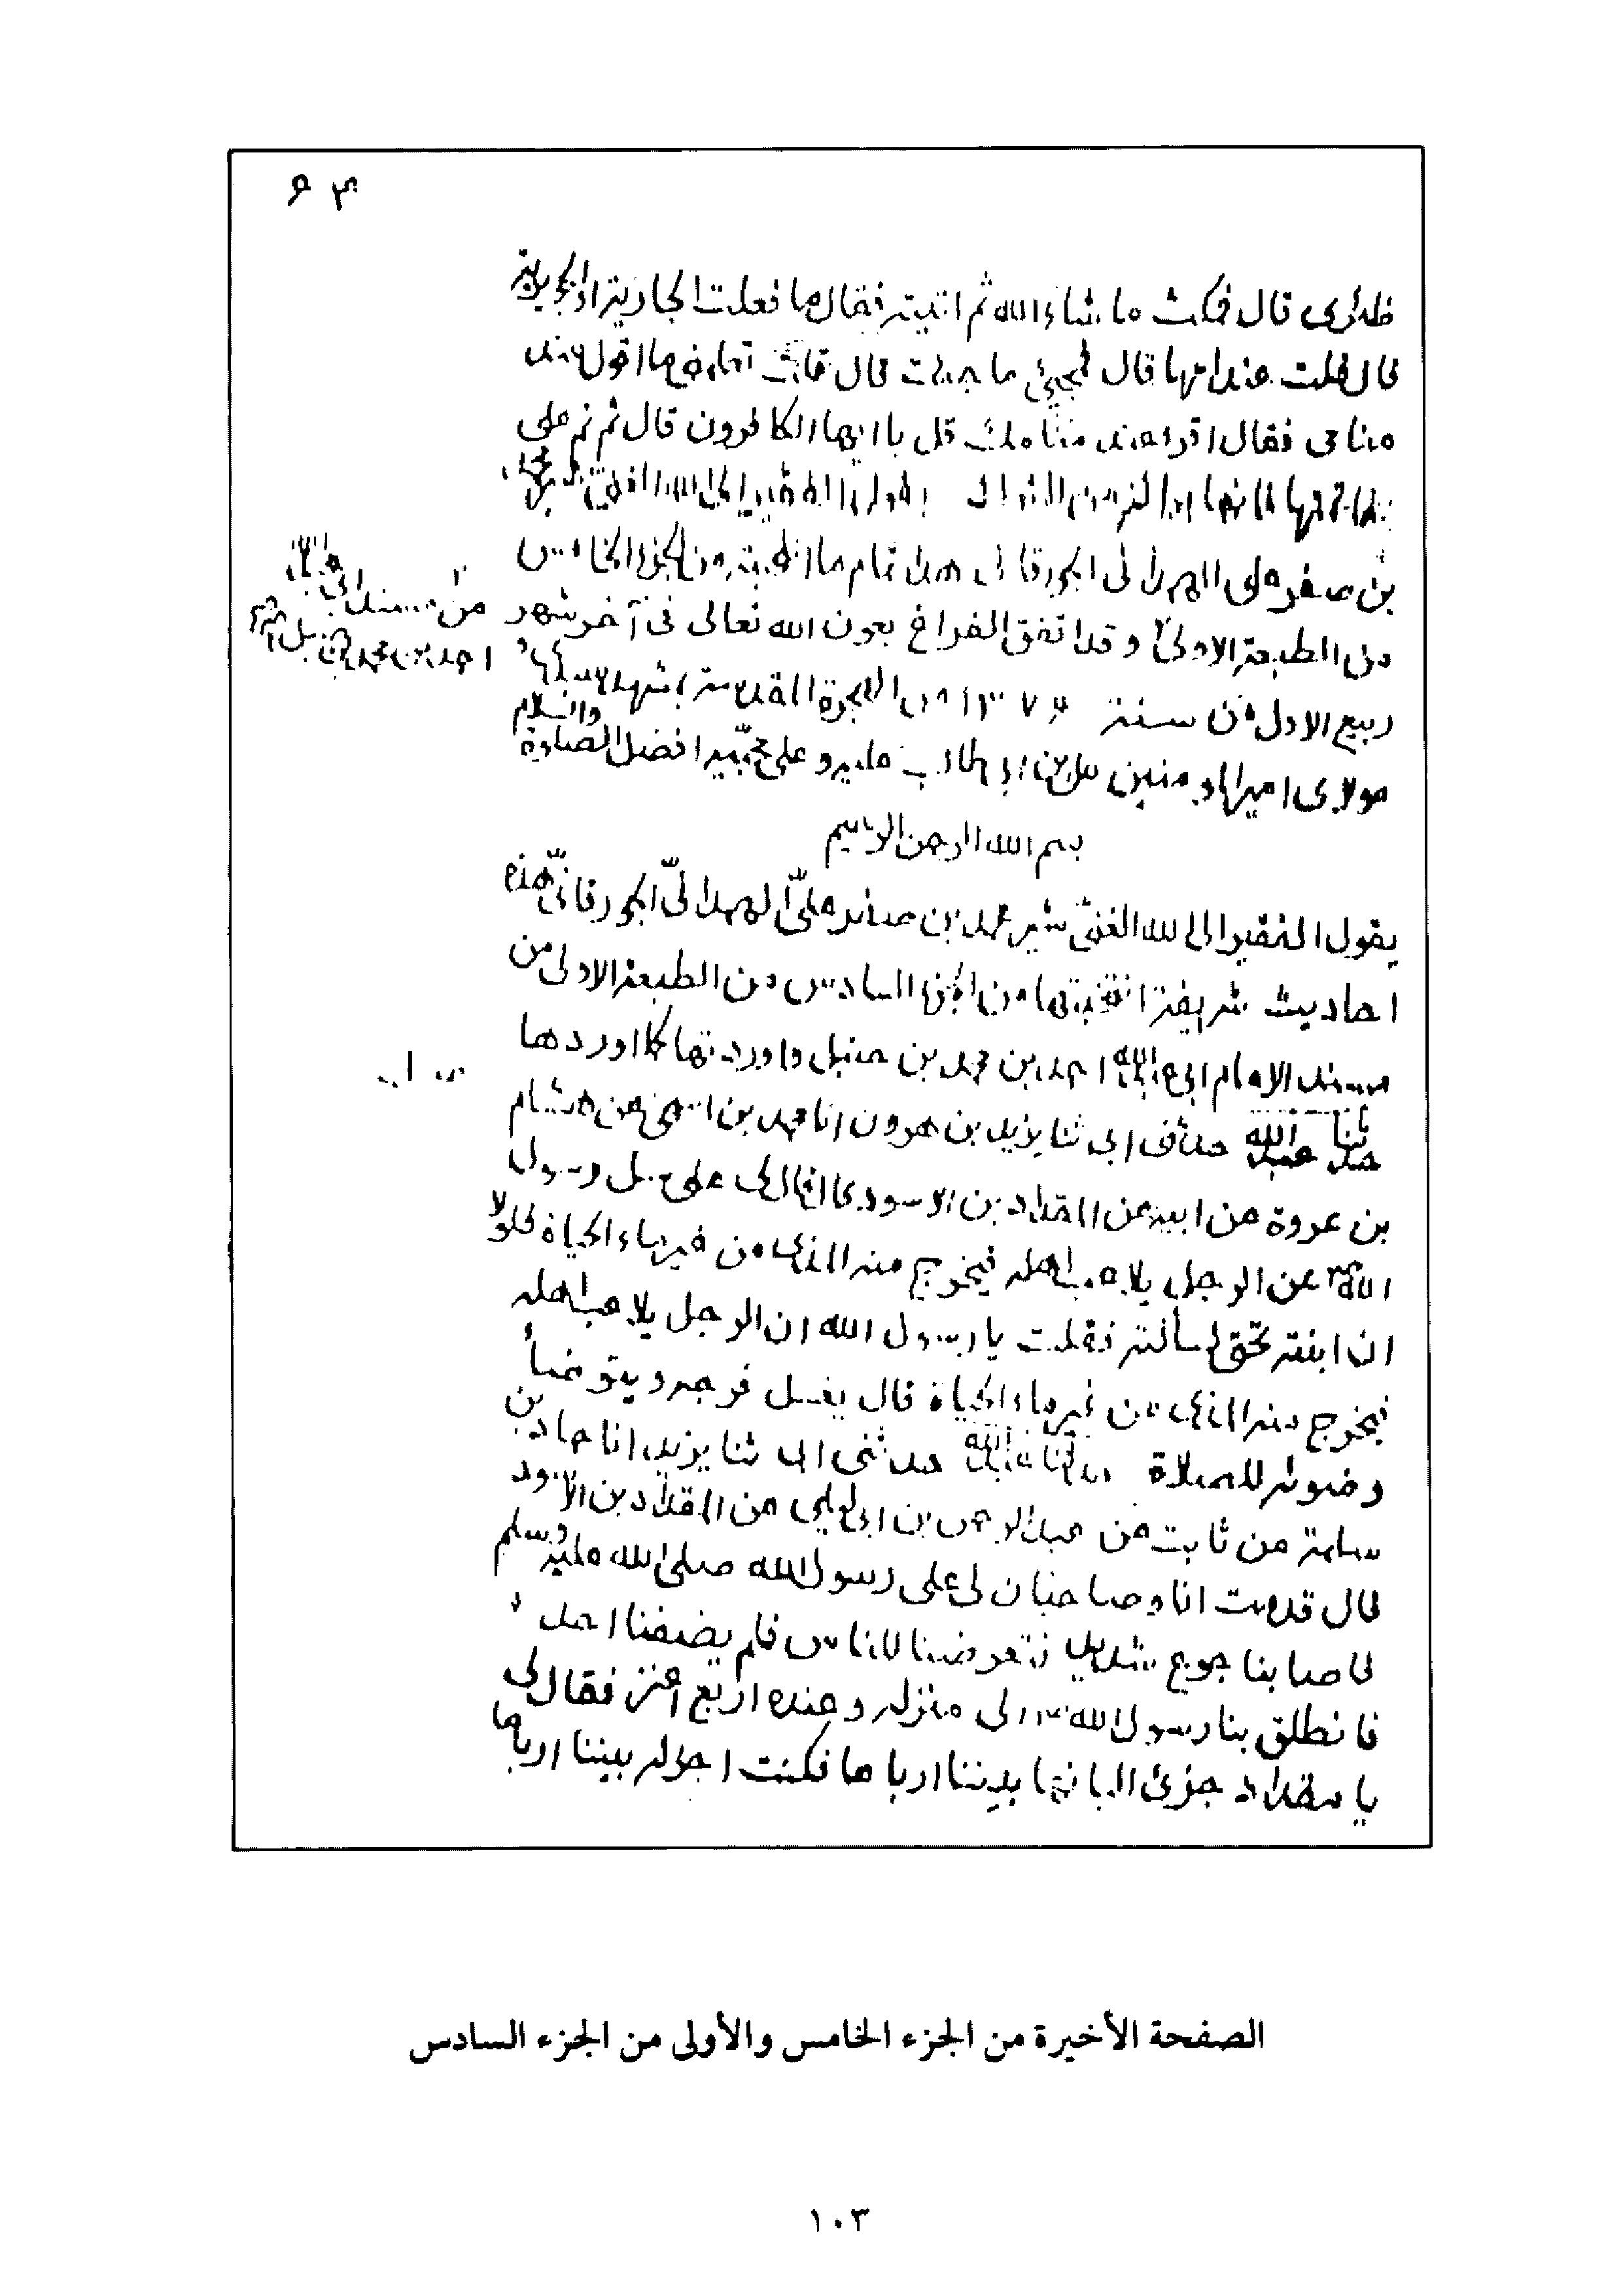 ظئري قال فمكث ما شاء الله ثم اتيته فقال ما فعلت الجارية او الجويرية
قال قلت عند امها قال فمجيئ ما جئت قال قلت تعلمنى ما اقول عند
منامى فقال اقرء عند منامك قل يا ايها الكافرون قال ثم نم على
خاتمتها فانها براءة من الشرك يقول الفقير الى الله الغنى شير محمد
بن صفر على الهمدانى الجورقانى هذا تمام ما انتخبته من الجزء الخامس
من مسند ابى عبد الله
احمد بن محمد بن حنبل
من الطبعة الاولى وقد اتفق الفراغ بعون الله تعالى فى آخر شهر
ربيع الاول من سنة ١٣٧٤ من الهجرة المقدسة بمشهد
مولاى امير المومنين على بن ابى طالب عليه و على محبيه افضل الصلوة والسلام
بسم الله الرحمن الرحيم
يقول الفقير الى الله الغنىّ شير محمد بن صفر علىّ الهمدانىّ الجورقانىّ هذه
احاديث شريفة انتخبتها من الجزء السادس من الطبعة الاولى من
مسند الامام ابى عبد الله احمد بن محمد بن حنبل و اوردتها كما اوردها
حدثنا عبد الله حدثنى ابى ثنا يزيد بن هرون انا محمد بن اسحق عن هشام
بن عروة عن ابيه عن المقداد بن الاسود قال قال لى على سل رسول
الله عن الرجل يلاعب اهله فيخرج منه المذى من غير ماء الحياة فلولا
ان ابنته تحتى لسألته فقلت يا رسول الله ان الرجل يلاعب اهله
فيخرج منه المذى من غير ماء الحياة قال يغسل فرجه و يتوضأ
وضوئه للصلاة حدثنا عبد الله حدثنى ابى ثنا يزيد انا حماد بن
سلمة عن ثابت عن عبد الرحمن بن ابى ليلى عن المقداد بن الاسود
قال قدمت انا و صاحبان لى على رسول الله صلى الله عليه وسلم
فاصابنا جوع شديد فتعرضنا للناس فلم يضفنا احد
فانطلق بنا رسول الله الى منزله و عنده اربع اعنز فقال لى
يا مقداد جزئ البانها بيننا ارباعا فكنت اجزئه بيننا ارباعا
الصفحة الأخيرة من الجزء الخامس والأولى من الجزء السادس
١٠٣